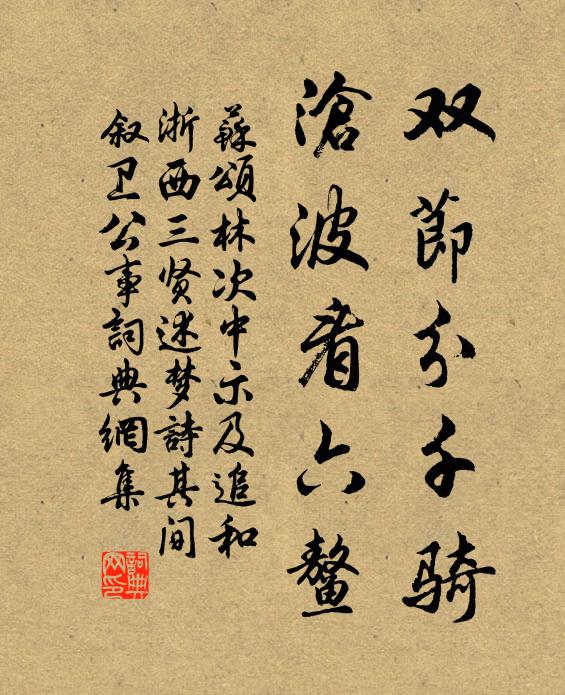 双節分千骑
滄波看六鳌
蘇頌林次中示及追和
浙西三贤述梦詩其间
叙卫公事詞典網集
詞典网印